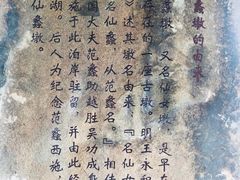 蠡墩的由来
蠡墩，又名仙女墩，是早在
存在的一座古墩。明王永积
》述其墩名由来，『名仙女
名仙蠡，从范蠡名。』相传
国大夫范蠡助越胜吴功成身
施于此泊岸驻留，并由此经
湖。后人为纪念范蠡西施，
仙蠡墩。